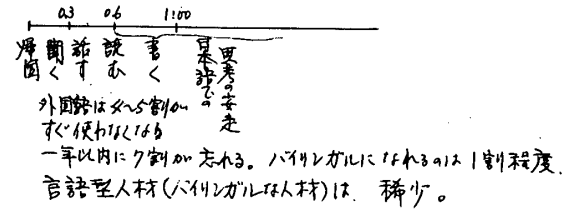 0.3 0.6 1:00
帰国
聞く
話す
読む
書く
日本語での
思考の安定
外国語は4〜5割が
すぐ使わなくなる
一年以内に7割が忘れる。バイリンガルになれるのは1割程度.
言語型人材(バイリンガルな人材)は、稀少。